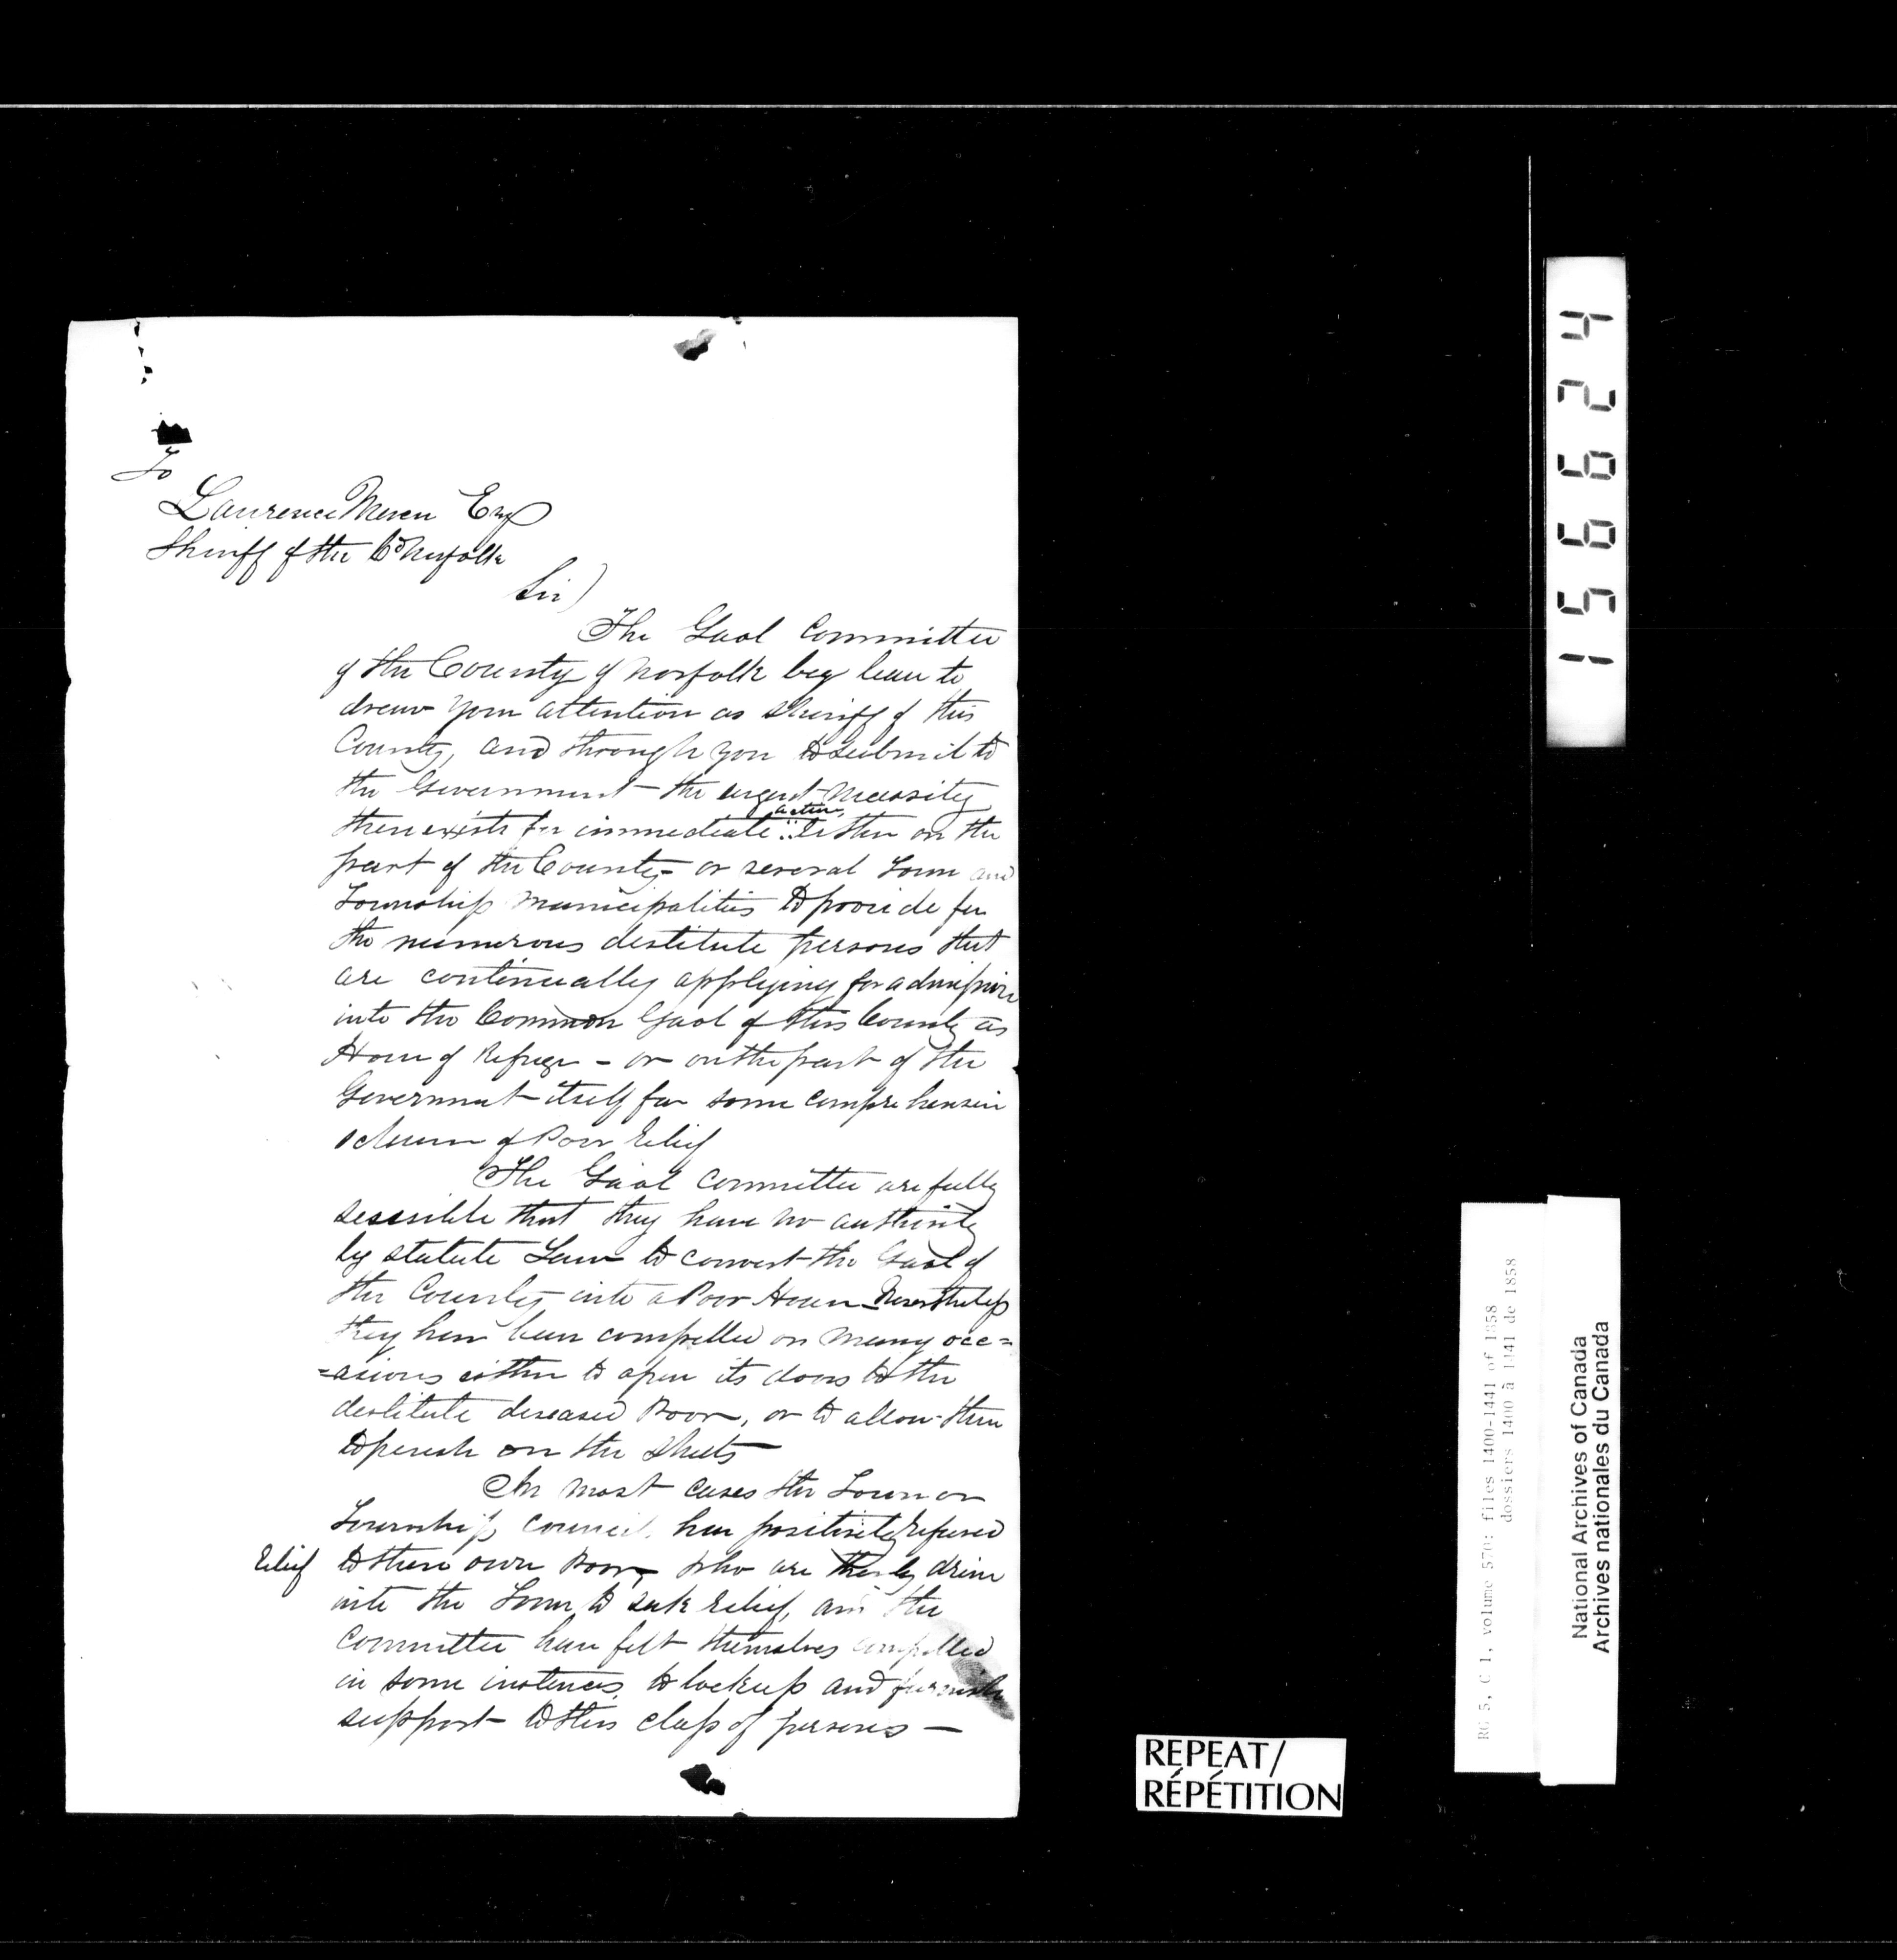 To
Lawrence Mercer Esq
Sheriff of the Co Norfolk
Sir)
The Gaol Committee
of the County of Norfolk beg leave to
draw your attention as Sheriff of this
County, and through you to submit to
the Government - the urgent necessity
there exists for immediate action, either on the
part of the County - or several Town and
Township Municipalities to provide for
the numerous destitute persons that
are continually applying for admission
into the Common Gaol of this County as
House of Refuge - or on the part of the
Government itself for some comprehensive
scheme of Poor relief
The Gaol Committee are fully
sensible that they have no authority
by statute Law to convert the Gaol of
the County into a Poor House - Nevertheless
they have been compelled on many occ=
=asions either to open its doors to the
destitute diseased Poor, or to allow them
to perish on the Streets -
In most cases the Town or
Township council have positively refused
relief to there own Poor, who are thereby driven
into the Town to seek relief, and the
Committee have felt themselves compelled
in some instances, to lock up and furnish
support to this class of persons -
156624
RG 5, C 1, volume 570: files 1400-1441 of 1858
dossiers 1400 à 1441 de 1858
National Archives of Canada
Archives nationales du Canada
REPEAT/
RÉPÉTITION